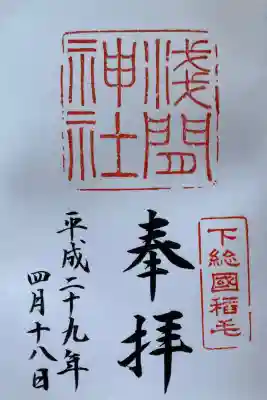 浅間神社
下総國稲毛
奉拝
平成二十九年
四月十八日